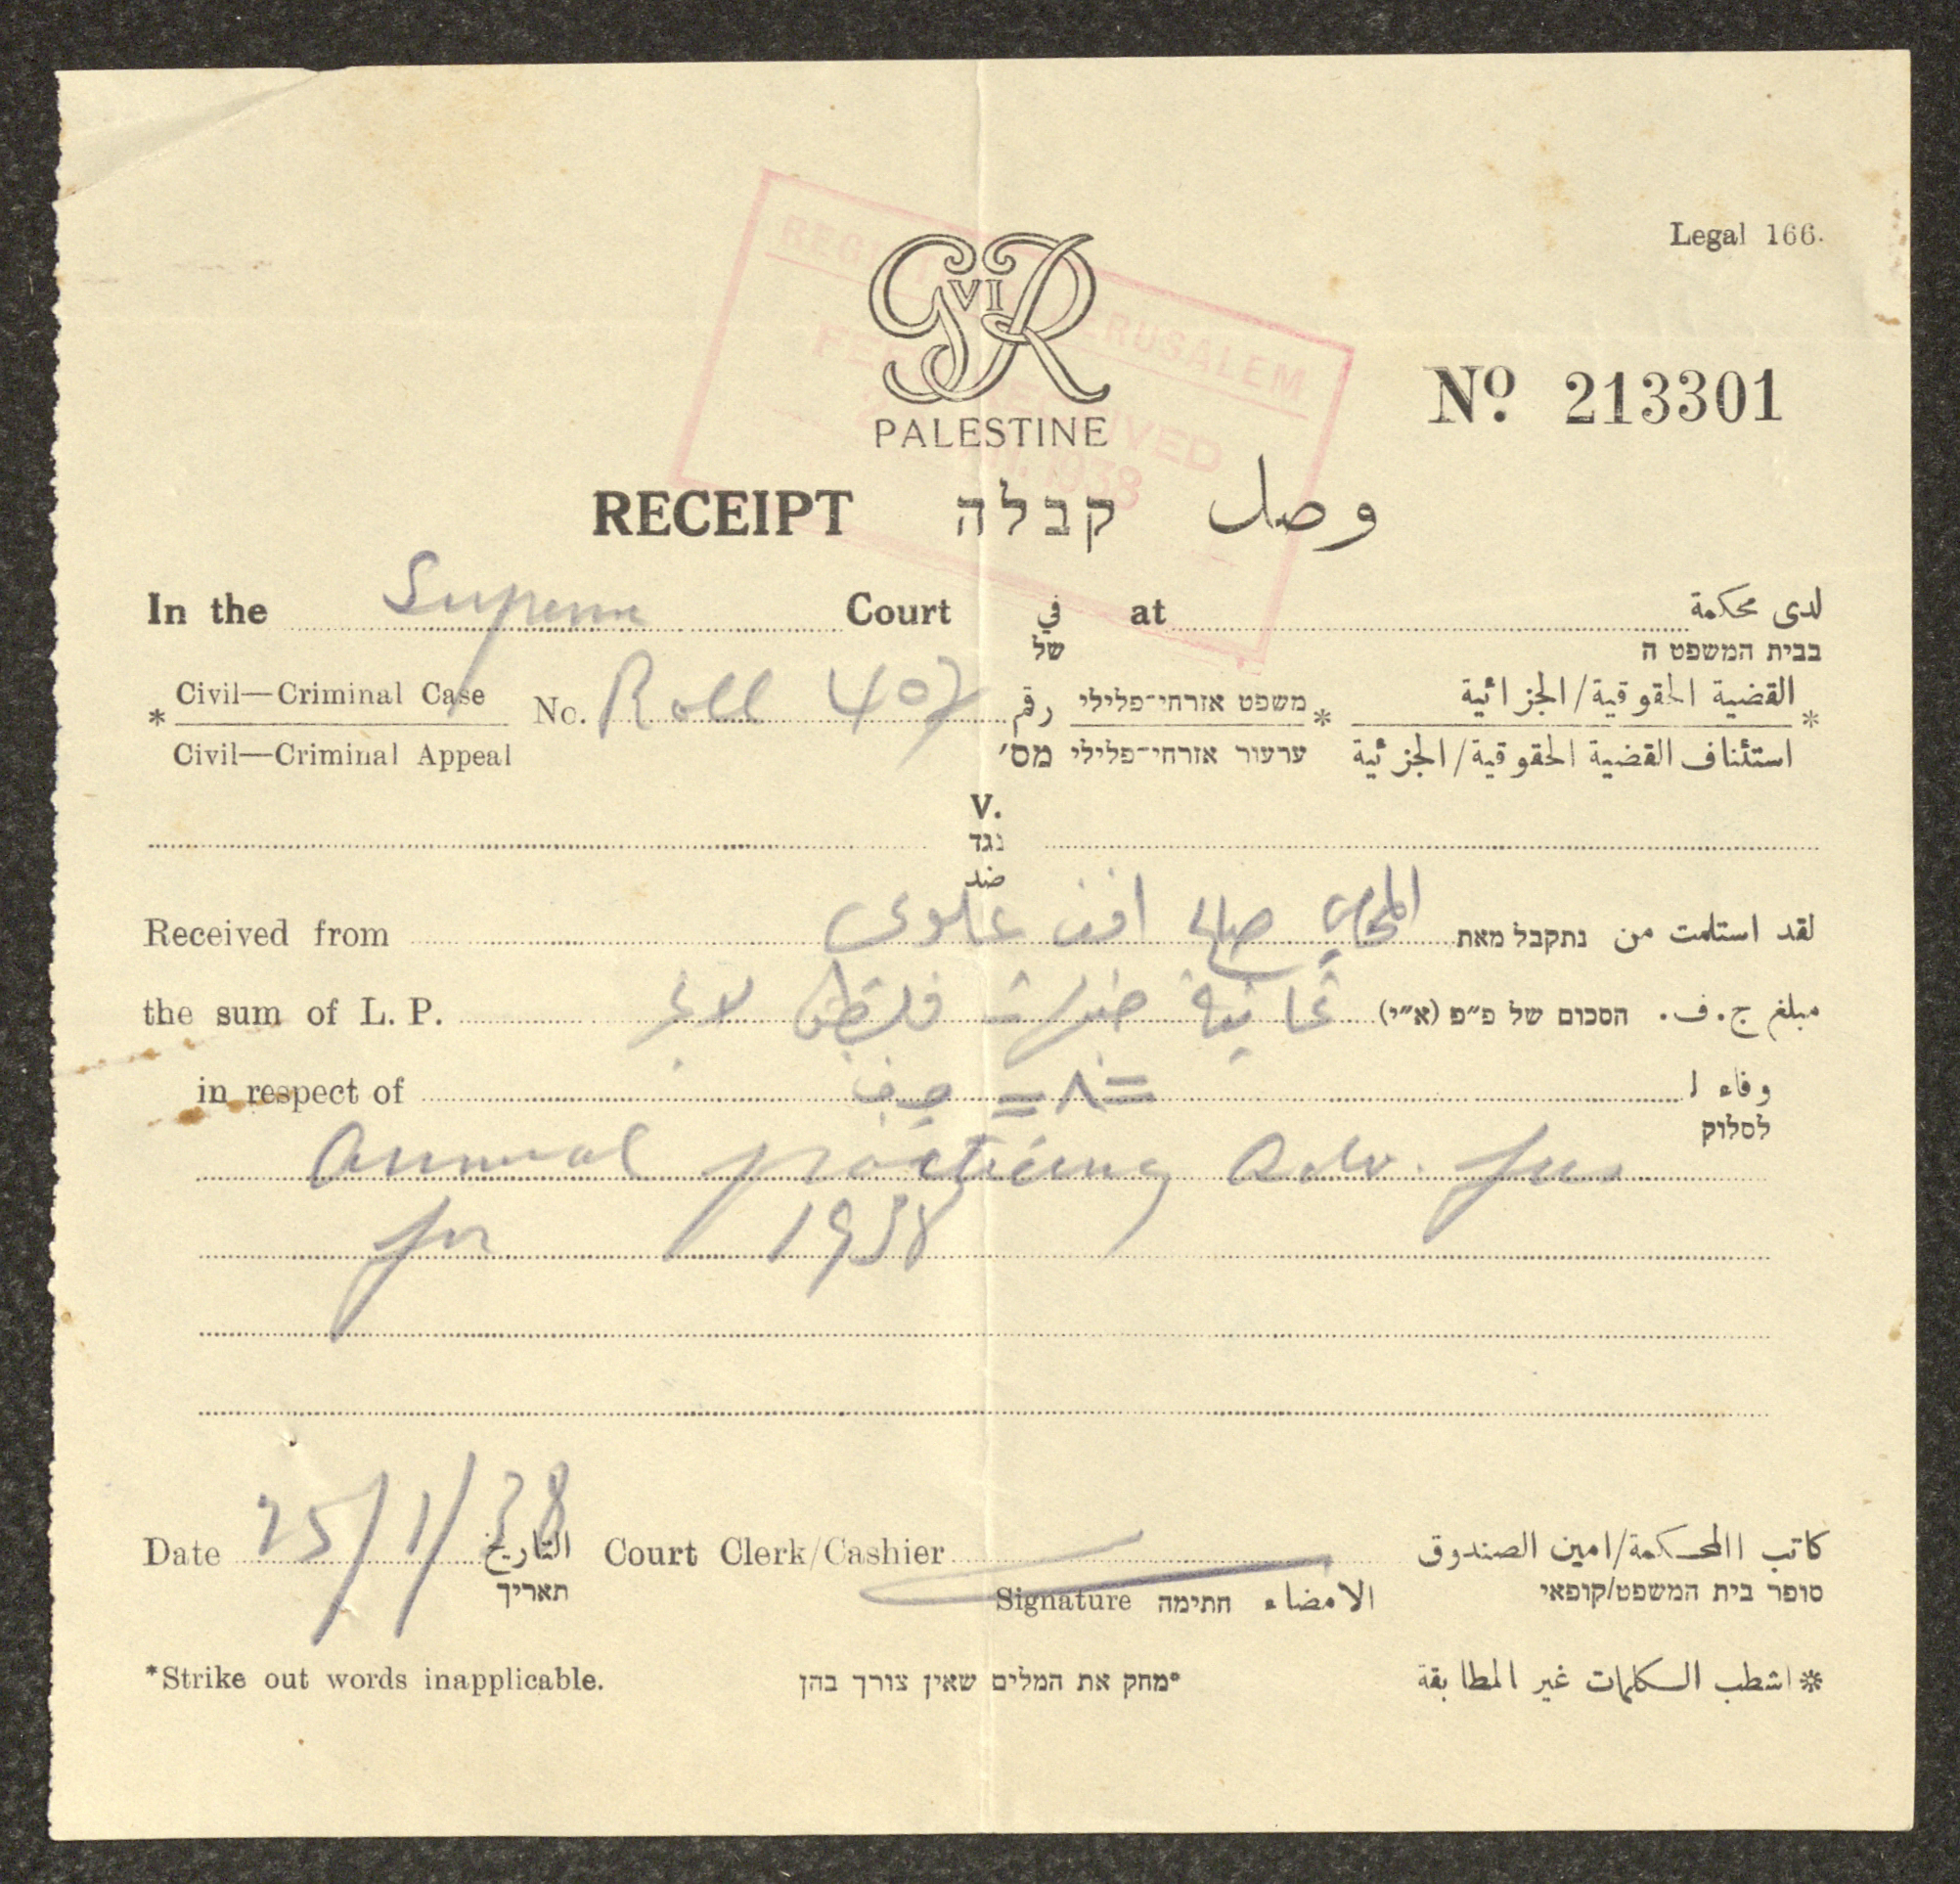 Legal 166.
GVIR
PALESTINE
REGISTRY JERUSALEM
FEES RECEIVED
1938
Nº. 213301
RECEIPT קבלה وصل
In the Supreme Court في at لدى محكمة
של בבית המשפט ה
* Civil—Criminal Case No. Roll 407 رقم משפט אזרחי־פלילי * القضية الحقوقية/الجزائية *
Civil—Criminal Appeal מס׳ ערעור אזרחי־פלילי استئناف القضية الحقوقية/الجزئية
V.
נגד
ضد
Received from المحامي صالح افندي علوي לקד استلمت من נתקבל מאת
the sum of L. P. ثمانية جنيهات فلسطيني لا غير مبلغ ج. ف. הסכום של פ״פ (א״י)
in respect of =٨= ج ف وفاء ا
לסלוק
Annual practicing Adv. fees
for 1938
Date 25/1/38 التاريخ Court Clerk/Cashier كاتب االمحكمة/امين الصندوق
תאריך Signature חתימה الامضاء סופר בית המשפט/קופאי
*Strike out words inapplicable. *מחק את המלים שאין צורך בהן * اشطب الكلمات غير المطابقة